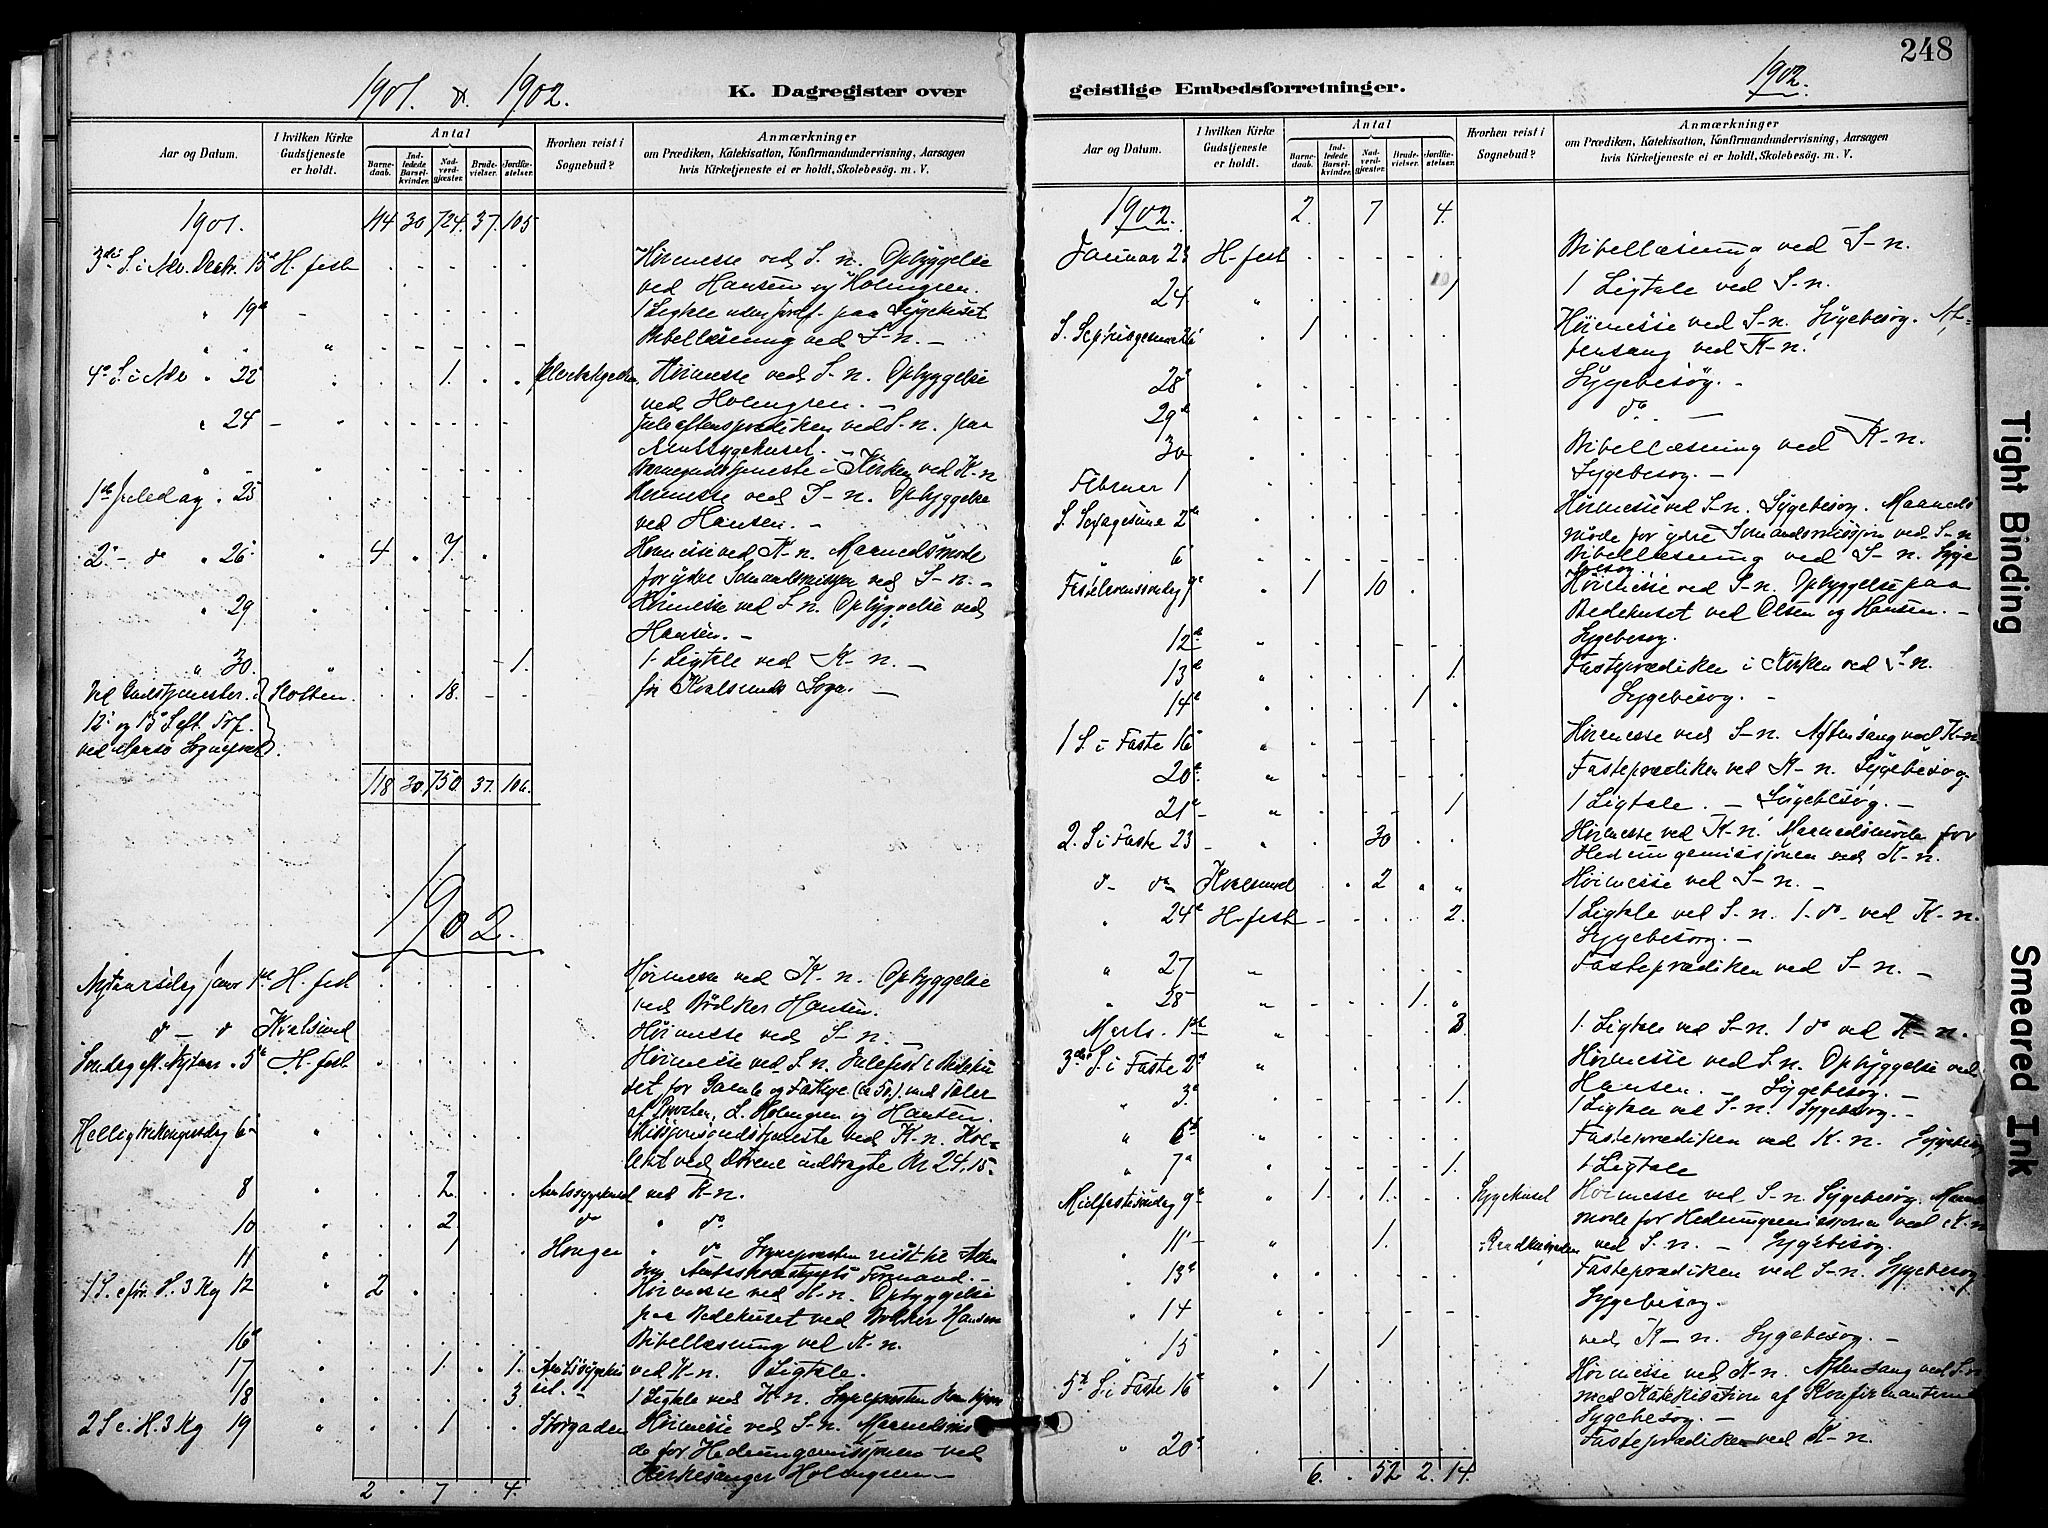 1901 & 1902.
K. Dagregister over
Aar og Datum.
I hvilken Kirke Gudstjeneste er holdt.
Antal
Barnedaab.
Indledede Barselkvinder.
Nadverdgjæster.
Brudevielser.
Jordfæstelser.
Hvorhen reist i Sognebud?
Anmærkninger
om Prædiken, Katekisation, Konfirmandundervisning, Aarsagen
hvis Kirketjeneste ei er holdt, Skolebesög. m. V.
1901. 30 724. 37. 105
3die S. i Adv. Decbr. 15de H. fest Höimesse ved S-n. Opbyggelse
ved Hansen og Holmgren.
" 19de 1 Ligtale uden Jordf. paa Sygehuset
Bibellæsning ved S-n.
4de S. i Adv " 22de 1. Höimesse ved S-n. Opbyggelse
ved Holmgren.
" 24 Juleaftensprædiken ved S-n. paa
Amtssygehuset.
Barnegudstjeneste i Kirken ved K-n
1ste Juledag " 25 Höimesse ved S-n. Opbyggelse
ved Hansen.
2den do " 26 4 7. Höimesse ved K-n. Maanedsmöde
for ydre Sömandsmission ved S-n.
" 29 Höimesse ved S-n. Opbyggelse ved
Hansen.
" 30. 1. 1 Ligtale ved K-n.
Ved Gudstjenester Kolten 18. for Kvalsunds Sogn.
12te og 15de Septr.
ved Sognepræst.
118 30. 750. 37. 106.
1902.
Nytaarsdag Janr 1ste H. fest Höimesse ved K-n. Opbyggelse
ved Bödker Hansen.
do - do Kvalsund Höimesse ved S-n.
Söndag eft. Nytaar 5te H. fest Höimesse ved S-n. Julefest i Bedehu
set for Gamle og Fattige med Taler
af Provsten, L. Holmgren og Hansen.
Helligtrekongersdag 6te Missionsgudstjeneste ved K-n. Kol-
lekt ved Dörene indbragte Kr 24,15.
8 2 Amtssygehuset ved K-n.
10 2 do " do
11 1 Haugen " do Sognepræsten reist til
Amtsskolestyrets Formand.
1 S. efter H. 3 Kg 12 2 Höimesse ved K-n. Opbyggelse
paa Bedehuset ved Bödker Hansen
16de Bibellæsning ved K-n.
17 1. 1. Amtssygehuset. ved K-n. Ligtale.
18 3. 1 Ligtale ved K-n. Sognepræsten
2 S. e. H. 3 Kg 19 1 Storgaden Höimesse ved S-n. Maanedsmö
de for Hedningemissionen ved
Kirkesanger Holmgren
2 7 4.
248
1902.
geistlige Embedsforretninger.
Aar og Datum.
I hvilken Kirke Gudstjeneste er holdt.
Antal
Barnedaab.
Indledede Barselkvinder.
Nadverdgjæster.
Brudevielser.
Jordfæstelser.
Hvorhen reist i Sognebud?
Anmærkninger
om Prædiken, Katekisation, Konfirmandundervisning, Aarsagen
hvis Kirketjeneste ei er holdt, Skolebesög. m. V.
1902. 2. 7 4.
Januar 23 H-fest Bibellæsning ved S-n.
24 " 1 1 Ligtale ved S-n.
S. Septuagesima 26 1 Höimesse ved S-n. Sygebesög. Af-
tensang ved K-n.
28 " Sygebesög.
29de " do
30 Bibellæsning ved K-n.
Februar 1 " Sygebesög.
S. Sexagesima 2den " Höimesse ved S-n. Sygebesög. Maaneds
möde for ydre Sömandsmission ved S-n
6 " Bibellæsning ved S-n. Syge
besög.
Fastelavnssöndag 9de " 1 10 Höimesse ved S-n. Opbyggelse paa
Bedehuset ved Olsen og Hansen.
12te " Sygebesög.
13de " 1. Fasteprædiken i Kirken ved S-n.
14de " 1 Sygebesög.
1 S. i Faste 16 " Höimesse ved S-n. Aftensang ved K-n
20de " Fasteprædiken ved K-n. Sygebesög.
21de " 1 1 Ligtale. Sygebesög.
2. S. i Faste 23 " 30 Höimesse ved K-n. Maanedsmöde for
Hedningemissionen ved K-n.
do do Kvalsund 2 Höimesse ved S-n.
" 24de H-fest 2. 1 Ligtale ved S-n. 1 do ved K-n.
Sygebesög.
" 27 " Fasteprædiken ved S-n.
" 28 " 1.
Marts. 1ste " 3. 1. Ligtale ved S-n. 1 do ved K-n.
3die S. i Faste 2den " Höimesse ved S.n. Opbyggelse ved
Hansen. Sygebesög.
" 3. 1. 1 Ligtale ved S-n. Sygebesög.
" 6te " Fasteprædiken ved K-n. Sygebesög
" 7de 1. 1 Ligtale
Midfastesöndag 9de " 1. 1. Sygehuset Höimesse ved S-n. Sygebesög. Maaneds
möde for Hedningemissionen ved K-n
" 11 " 1. ved S-n. Sygebesög.
" 13de " Fasteprædiken ved S-n. Sygebesög
" 14 " Sygebesög.
" 15 " 1 ved K-n. Sygebesög.
5te S. i Faste 16de " 1 Höimesse ved K-n. Aftensang ved S-n
med Katekisation af Konfirmanterne
Sygebesög.
" 20de Fasteprædiken ved K-n.
6. 52 2. 14.
Tight Binding
Smeared Ink